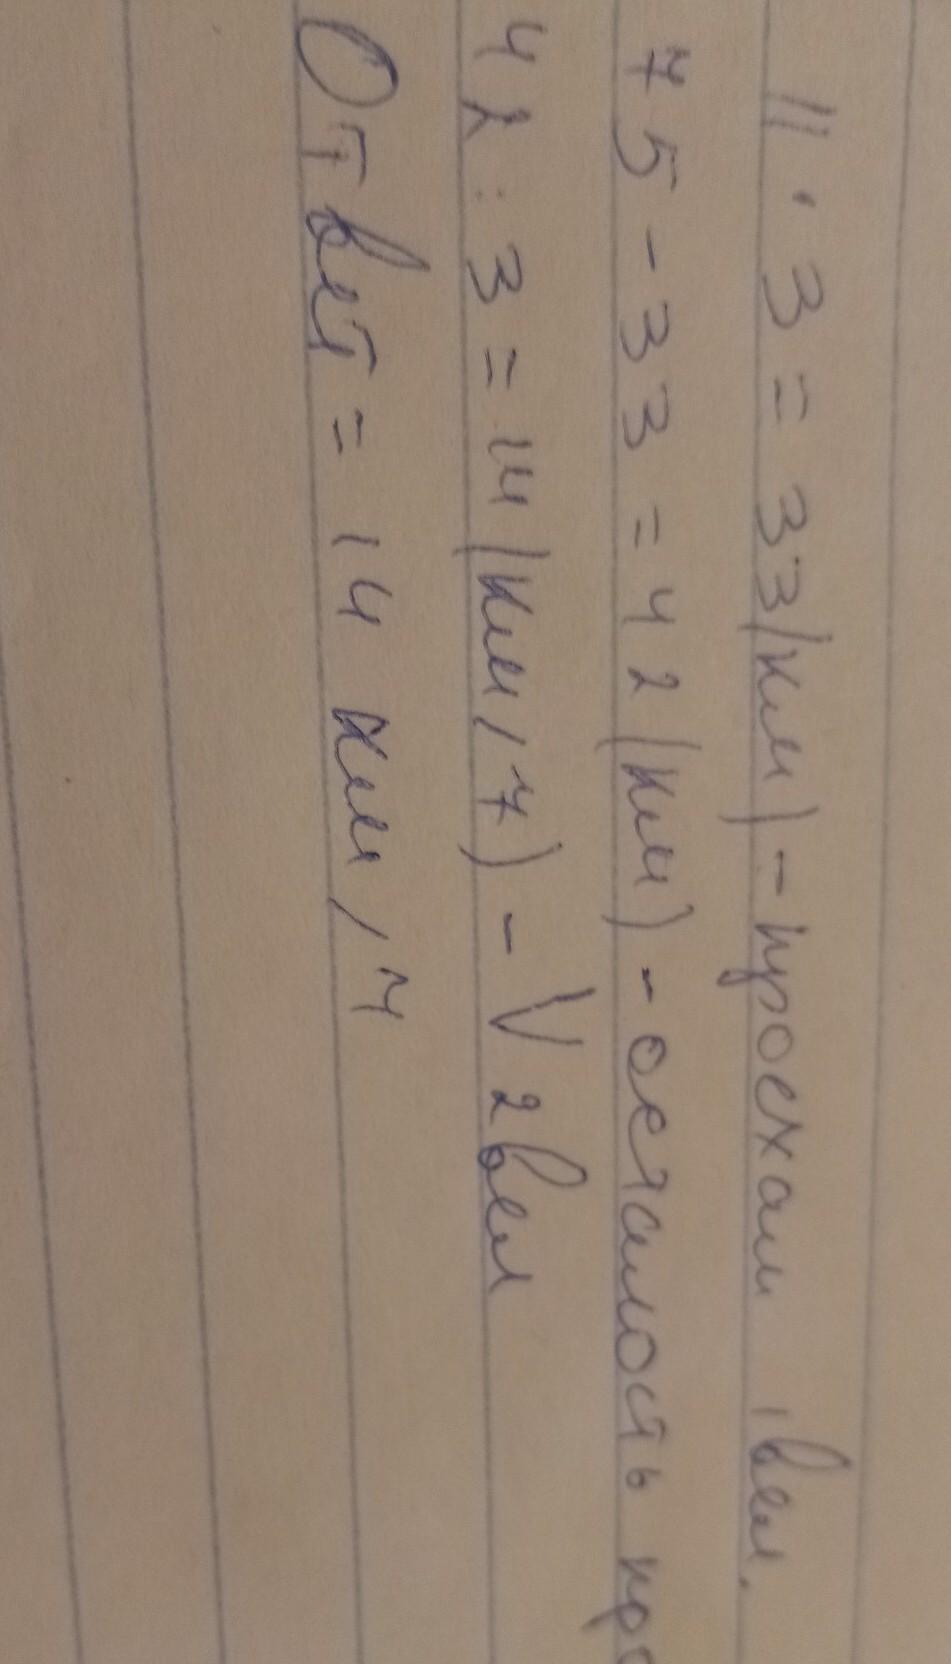 11 · 3 = 33 (км) - проехал 1 вел.
75 - 33 = 42 (км) - осталось
42 : 3 = 14 (км/ч) - V 2 вел
Ответ = 14 км/ч